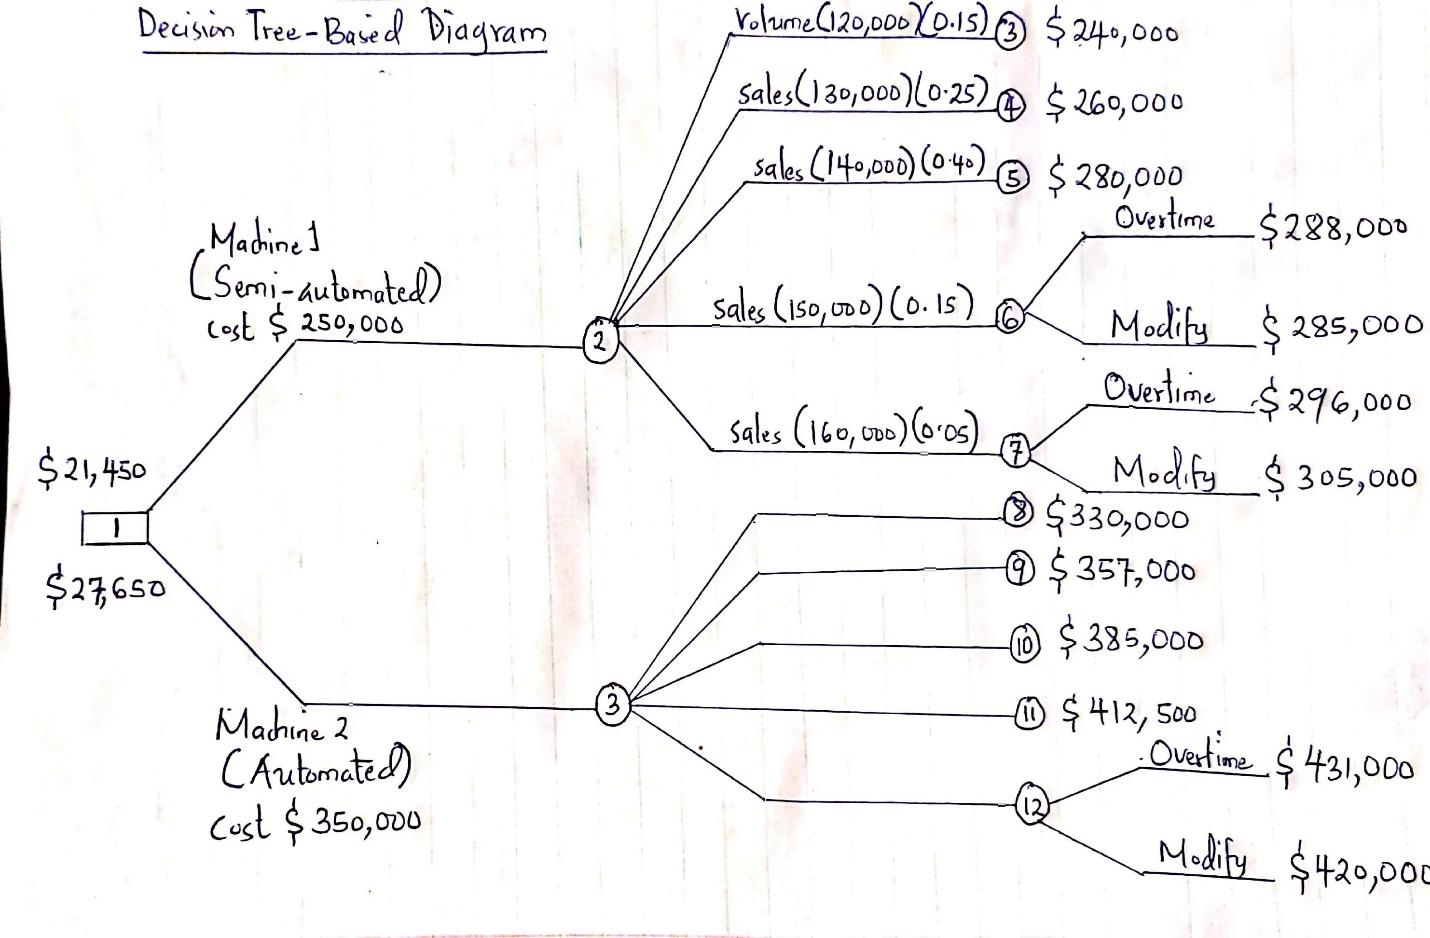 Decision Tree-Based Diagram
Volume(120,000)(0.15) 3 $ 240,000
sales(130,000)(0.25) 4 $ 260,000
sales (140,000)(0.40) 5 $ 280,000
Machine 1
(Semi-automated)
cost $ 250,000
2
sales (150,000)(0.15) 6
Overtime $288,000
Modify $ 285,000
sales (160,000)(0.05) 7
Overtime $ 296,000
Modify $ 305,000
$ 21,450
1
$27,650
Machine 2
(Automated)
cost $ 350,000
3
8 $330,000
9 $ 357,000
10 $ 385,000
11 $ 412,500
12
Overtime $ 431,000
Modify $420,000